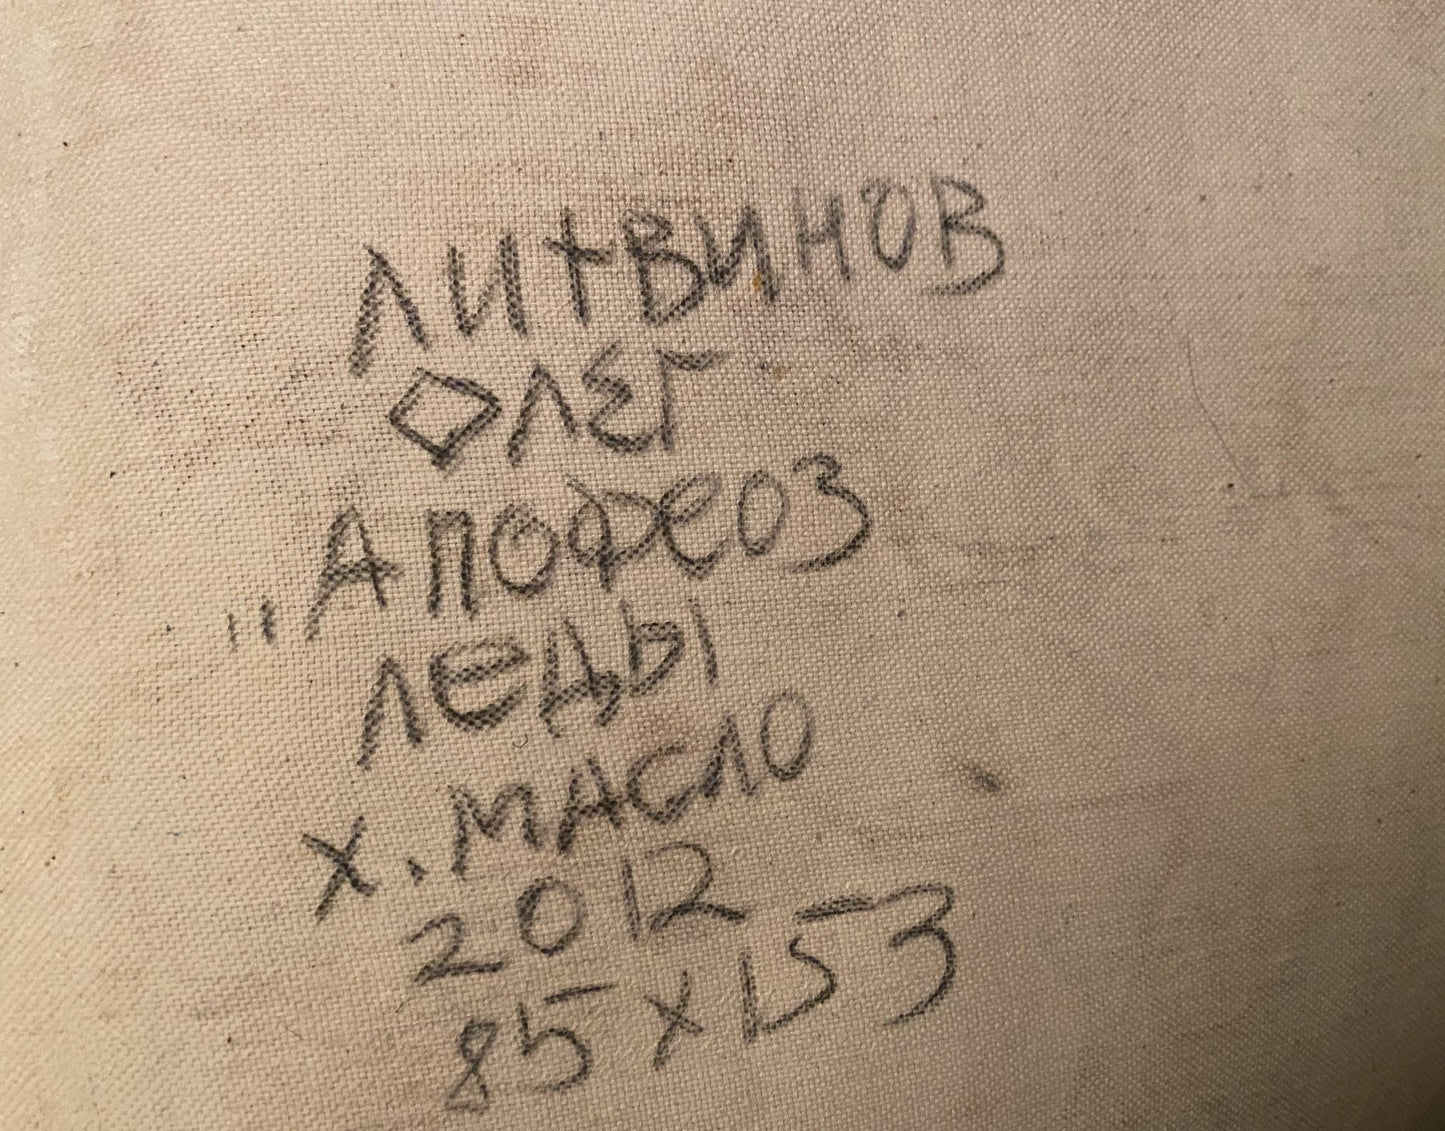 ЛИТВИНОВ
ОЛЕГ
"АПОФЕОЗ
ЛЕДЫ
Х. МАСЛО
2012
85 х 153